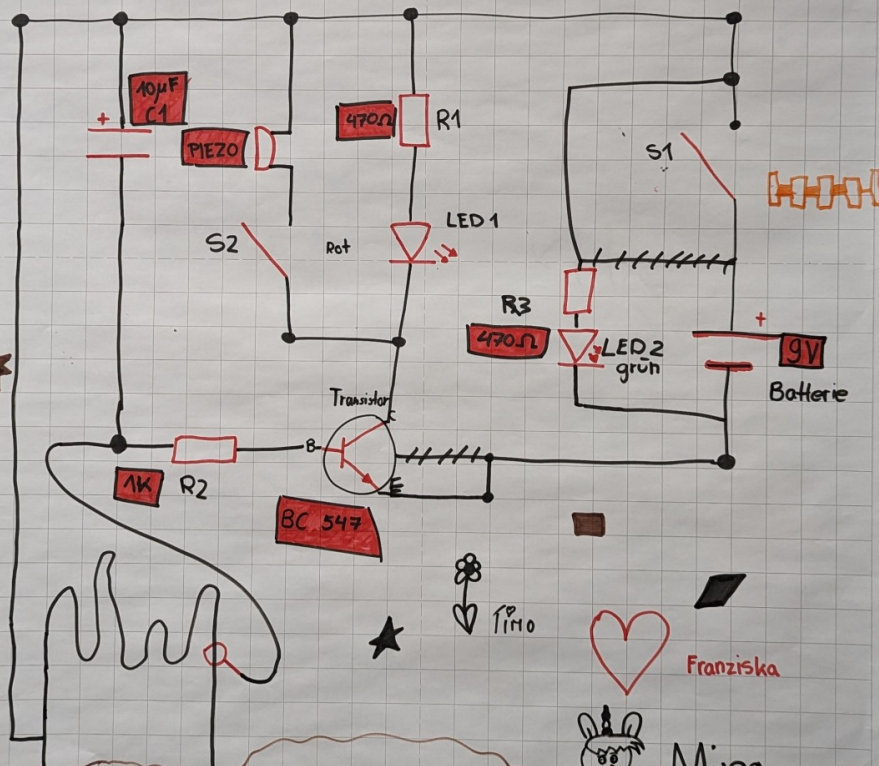 10µF
C1
+
PIEZO
470Ω
R1
S1
S2
Rot
LED1
R3
470Ω
LED2
grün
+
9V
Batterie
Transistor
C
B
E
1K
R2
BC 547
Timo
Franziska